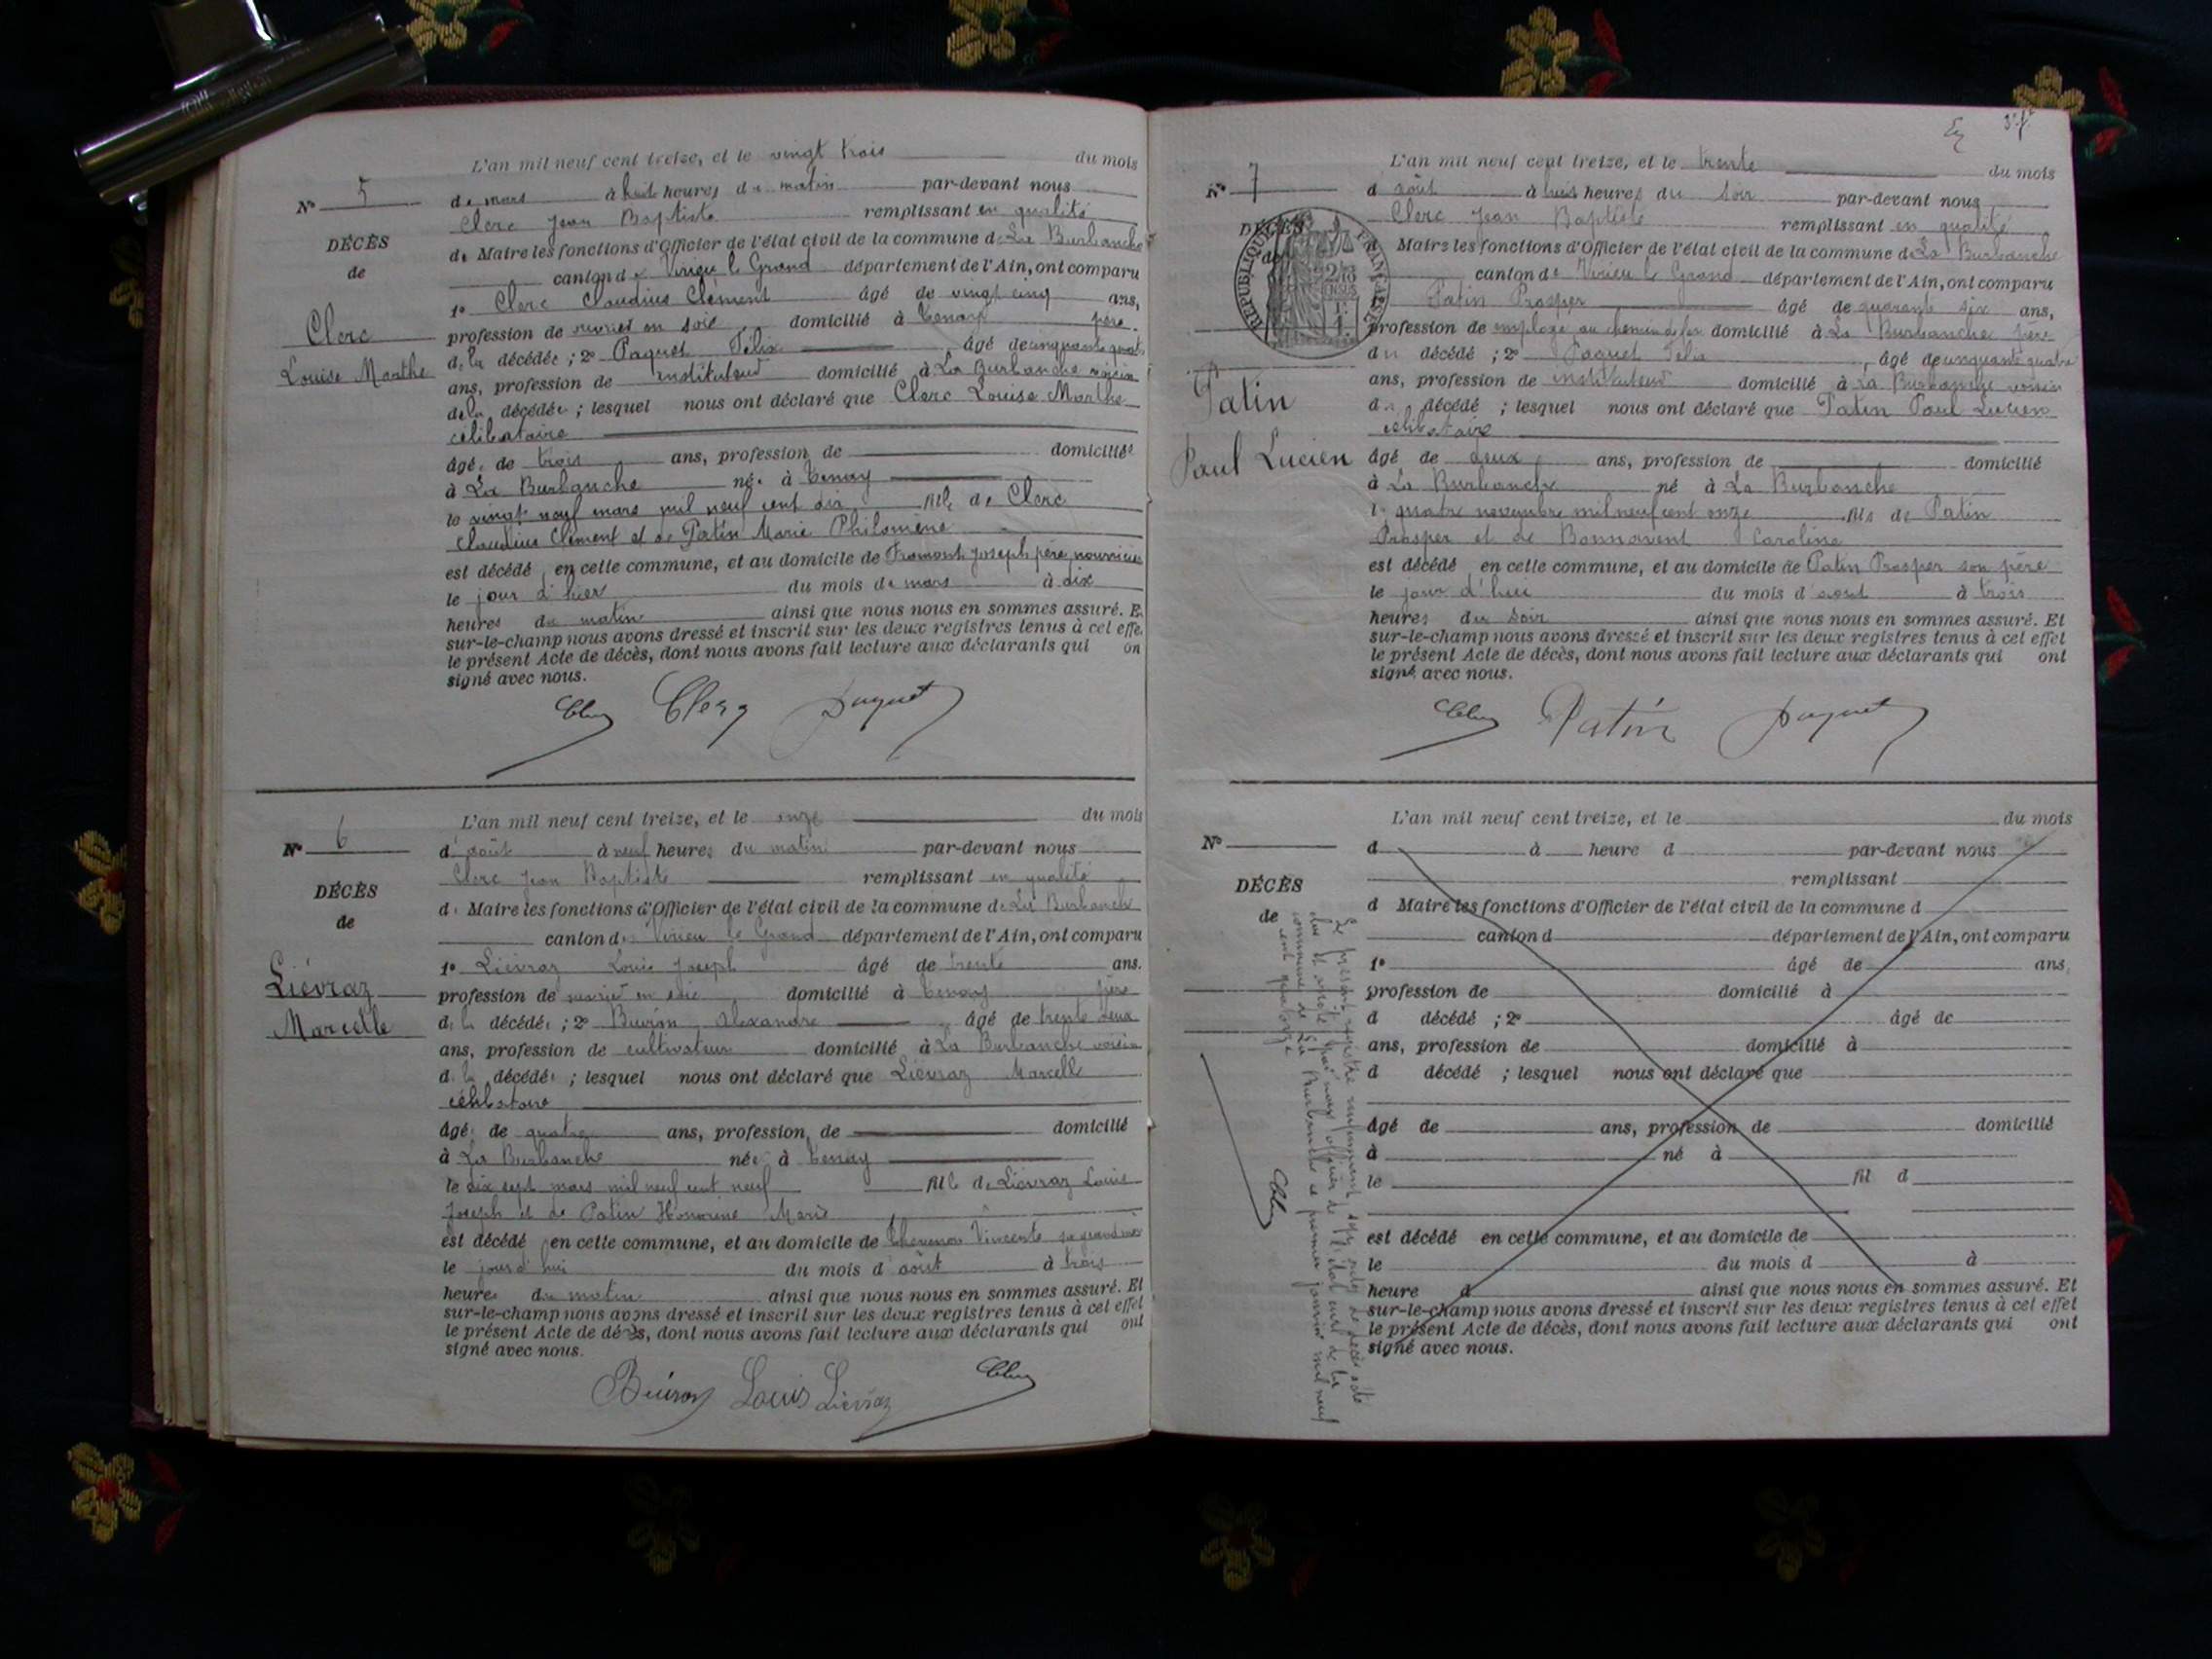 L'an mil neuf cent treize, et le vingt trois du mois
N° 5
de mars à huit heures du matin par-devant nous
Clerc Jean Baptiste remplissant en qualité
DÉCÈS
de Maire les fonctions d'Officier de l'état civil de la commune de La Burbanche
de
canton de Virieu le Grand département de l'Ain, ont comparu
1° Clerc Claudius Clément âgé de vingt cinq ans,
Clerc
profession de ouvrier en soie domicilié à Tenay père
Louise Marthe
de la décédée ; 2° Paquet Félix âgé de cinquante quatre
ans, profession de instituteur domicilié à La Burbanche voisin
de la décédée ; lesquel nous ont déclaré que Clerc Louise Marthe
célibataire
âgée de trois ans, profession de domiciliée
à La Burbanche née à Tenay
le vingt neuf mars mil neuf cent dix fille de Clerc
Claudius Clément et de Patin Marie Philomène
est décédé en cette commune, et au domicile de Fromont Joseph père nourricier
le jour d'hier du mois de mars à dix
heures du matin ainsi que nous nous en sommes assuré. E
sur-le-champ nous avons dressé et inscrit sur les deux registres tenus à cet effe
le présent Acte de décès, dont nous avons fait lecture aux déclarants qui on
signé avec nous.
Clerc Paquet
L'an mil neuf cent treize, et le onze du mois
N° 6
d'août à neuf heures du matin par-devant nous
Clerc Jean Baptiste remplissant en qualité
DÉCÈS
de Maire les fonctions d'Officier de l'état civil de la commune de La Burbanche
de
canton de Virieu le Grand département de l'Ain, ont comparu
1° Liévraz Louis Joseph âgé de trente ans.
Liévraz
profession de ouvrier en soie domicilié à Tenay père
Marcelle
de la décédée ; 2° Buiron Alexandre âgé de trente deux
ans, profession de cultivateur domicilié à La Burbanche voisin
de la décédée ; lesquel nous ont déclaré que Liévraz Marcelle
célibataire
âgée de quatre ans, profession de domicilié
à La Burbanche née à Tenay
le dix sept mars mil neuf cent neuf fille de Liévraz Louis
Joseph et de Patin Honorine Marie
est décédé en cette commune, et au domicile de Vincente sa grand'mère
le jour d'hui du mois d'août à trois
heures du matin ainsi que nous nous en sommes assuré. Et
sur-le-champ nous avons dressé et inscrit sur les deux registres tenus à cet effet
le présent Acte de décès, dont nous avons fait lecture aux déclarants qui ont
signé avec nous.
Buiron Louis Liévraz
L'an mil neuf cent treize, et le trente du mois
N° 7
d'août à huit heures du soir par-devant nous
Clerc Jean Baptiste remplissant en qualité
DÉCÈS
d Maire les fonctions d'Officier de l'état civil de la commune de La Burbanche
de
RÉPUBLIQUE FRANÇAISE
canton de Virieu le Grand département de l'Ain, ont comparu
Patin Prosper âgé de quarante six ans,
profession de employé au chemin de fer domicilié à La Burbanche père
du décédé ; 2° Paquet Félix, âgé de cinquante quatre
ans, profession de instituteur domicilié à La Burbanche voisin
Patin
du décédé ; lesquel nous ont déclaré que Patin Paul Lucien
célibataire
Paul Lucien
âgé de deux ans, profession de domicilié
à La Burbanche né à La Burbanche
le quatre novembre mil neuf cent onze fils de Patin
Prosper et de Bonnavent Caroline
est décédé en cette commune, et au domicile de Patin Prosper son père
le jour d'hui du mois d'aout à trois
heures du soir ainsi que nous nous en sommes assuré. Et
sur-le-champ nous avons dressé et inscrit sur les deux registres tenus à cet effet
le présent Acte de décès, dont nous avons fait lecture aux déclarants qui ont
signé avec nous.
Patin Paquet
L'an mil neuf cent treize, et le du mois
N°
d à heure d par-devant nous
remplissant
DÉCÈS
d Maire les fonctions d'Officier de l'état civil de la commune d
de
canton d département de l'Ain, ont comparu
1° âgé de ans,
profession de domicilié à
d décédé ; 2° âgé de
ans, profession de domicilié à
d décédé ; lesquel nous ont déclaré que
âgé de ans, profession de domicilié
à né à
le fil d
est décédé en cette commune, et au domicile de
le du mois d à
heure d ainsi que nous nous en sommes assuré. Et
sur-le-champ nous avons dressé et inscrit sur les deux registres tenus à cet effet
le présent Acte de décès, dont nous avons fait lecture aux déclarants qui ont
signé avec nous.
Le présent registre renfermant sept actes de décès a été
clos et arrêté par nous officier de l'état civil de la
commune de La Burbanche le premier janvier mil neuf
cent quatorze